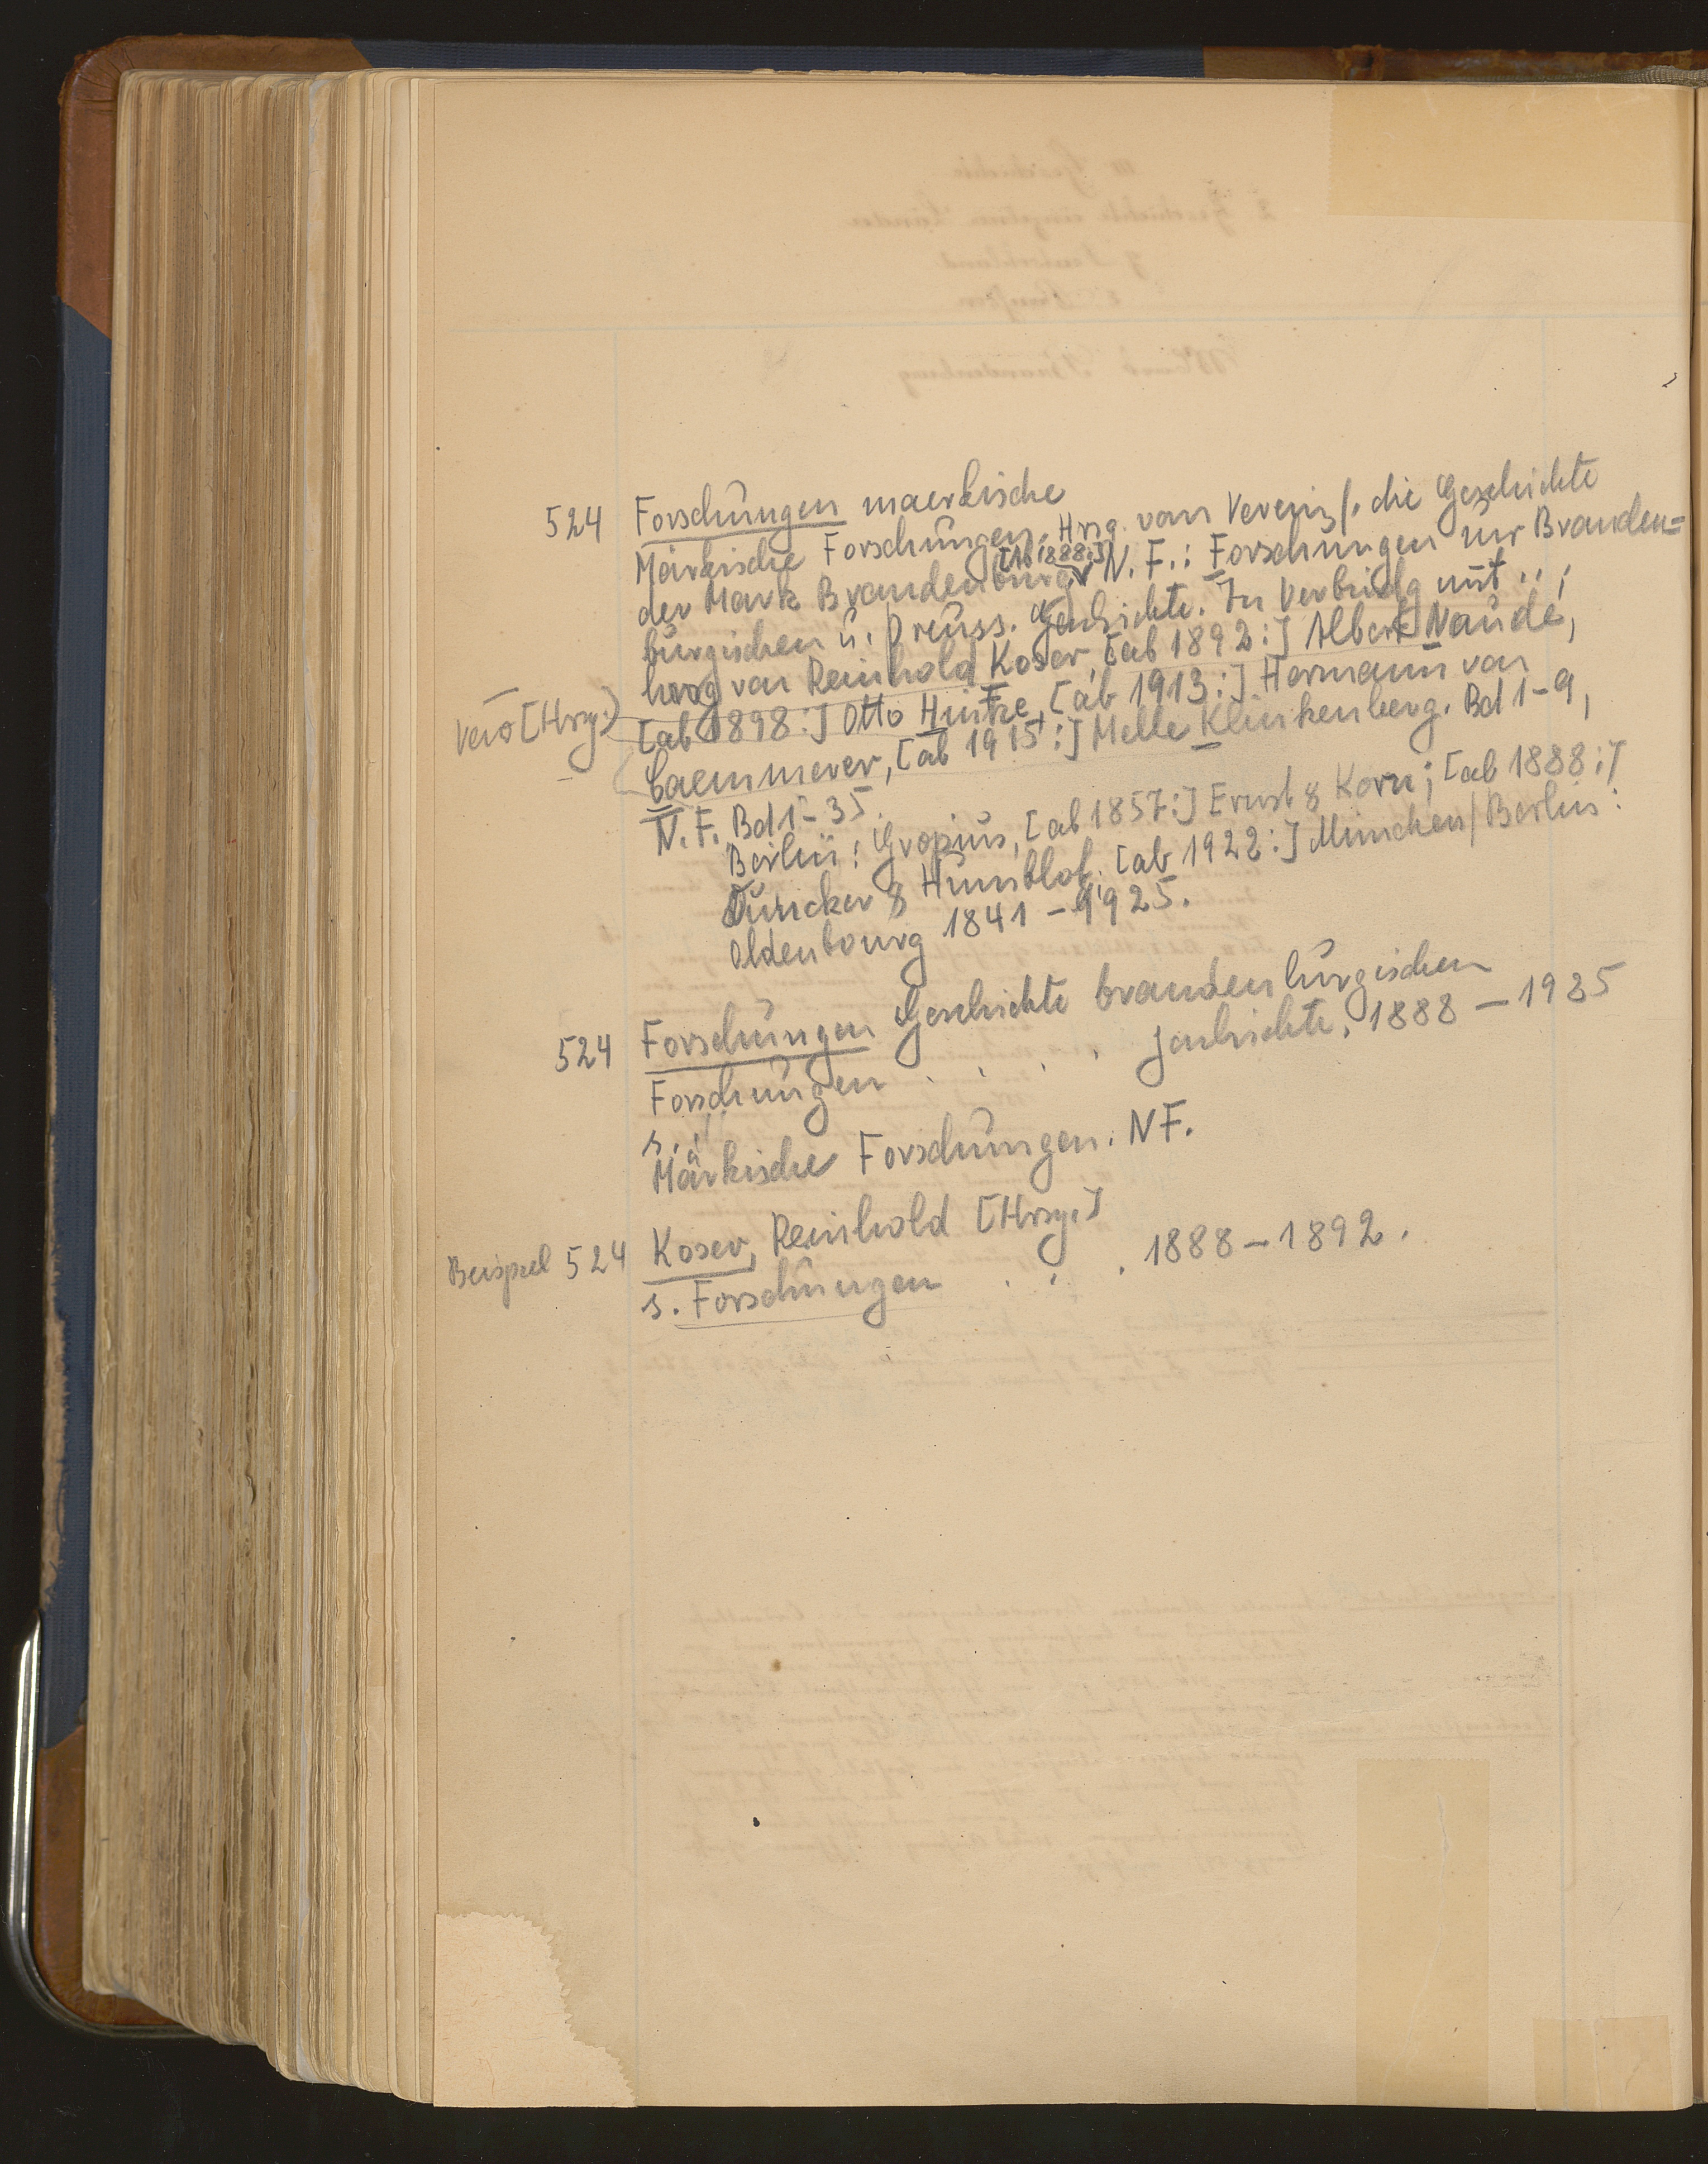 524 Forschungen maerkische
Märkische Forschungen. Hrsg. vom Verein f. die Geschichte
der Mark Brandenburg. [Ab 1888:] N. F.: Forschungen zur Branden=
burgischen u. preuss. Geschichte. In Verbindg mit ..;
hrsg von Reinhold Koser, [ab 1892:] Albert Naudé,
Verö [Hrsg.) [ab 1898:] Otto Hintze, [ab 1913:] Hermann von
Caemmerer, [ab 1915:] Melle Klinkenborg. Bd 1-9,
N. F. Bd 1-35.
Berlin: Gropius, [ab 1857:] Ernst & Korn; [ab 1888:]
Duncker & Humblot. [ab 1922:] München/Berlin:
Oldenbourg 1841-1925.
524 Forschungen Geschichte brandenburgischen
Forschungen . . . . Geschichte. 1888-1925
s.
Märkische Forschungen. NF.
Beispiel 524 Koser, Reinhold [Hrsg.]
s. Forschungen . . . 1888-1892.